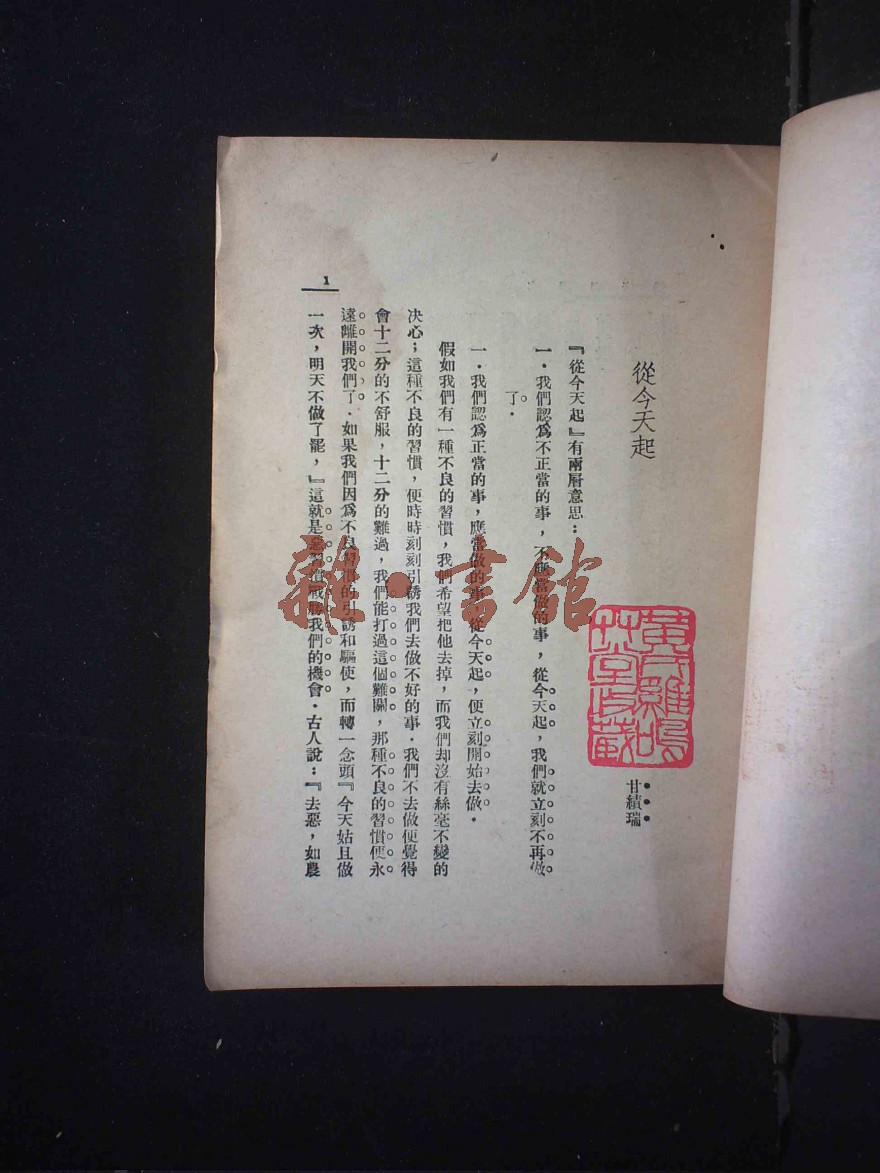 從今天起
甘績瑞
『從今天起』有兩層意思：
一．我們認爲不正當的事，不應當做的事，從今天起，我們就立刻不再做
了．
一．我們認爲正當的事，應當做的事，從今天起，便立刻開始去做．
假如我們有一種不良的習慣，我們希望把他去掉，而我們却沒有絲毫不變的
决心；這種不良的習慣，便時時刻刻引誘我們去做不好的事．我們不去做便覺得
會十二分的不舒服，十二分的難過，我們能打過這個難關，那種不良的習慣便永
遠離開我們了．如果我們因爲不良習慣的引誘和驅使，而轉一念頭『今天姑且做
一次，明天不做了罷，』這就是惡習慣戰勝我們的機會．古人說：『去惡，如農
1
雜·書館